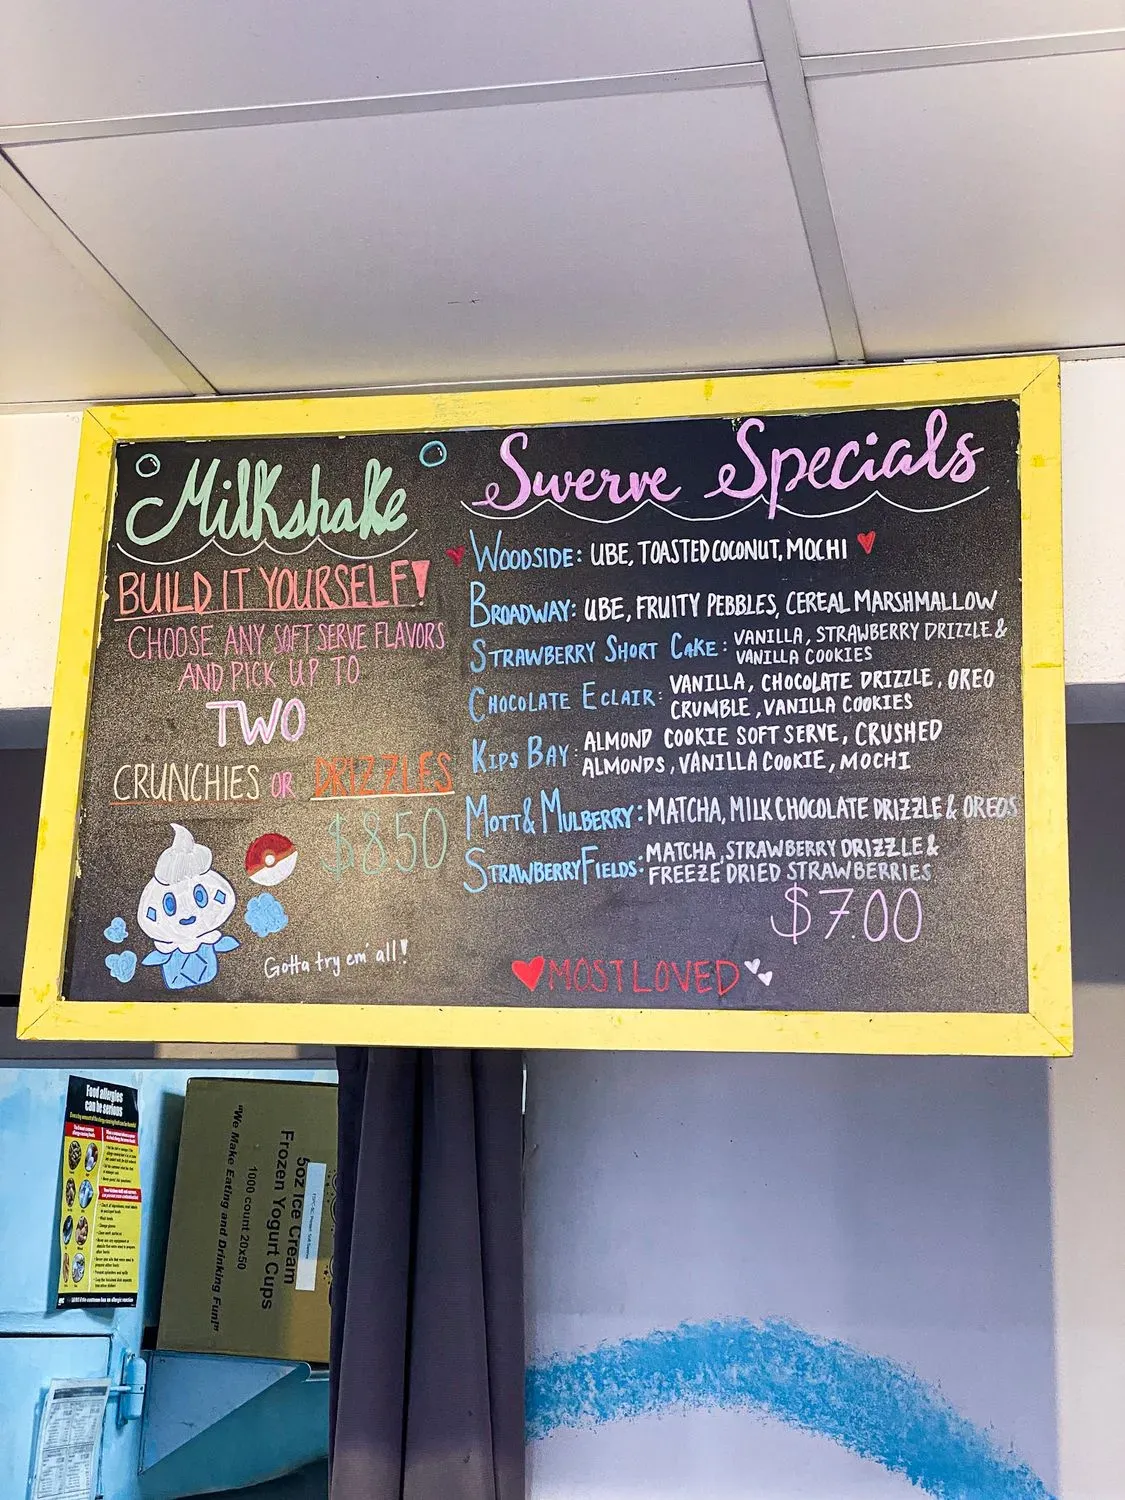 Milkshake
BUILD IT YOURSELF!
CHOOSE ANY SOFT SERVE FLAVORS
AND PICK UP TO
TWO
CRUNCHIES OR DRIZZLES
$8.50
Gotta try em' all!
Swerve Specials
WOODSIDE: UBE, TOASTED COCONUT, MOCHI
BROADWAY: UBE, FRUITY PEBBLES, CEREAL MARSHMALLOW
STRAWBERRY SHORT CAKE: VANILLA, STRAWBERRY DRIZZLE &
VANILLA COOKIES
CHOCOLATE ECLAIR: VANILLA, CHOCOLATE DRIZZLE, OREO
CRUMBLE, VANILLA COOKIES
KIPS BAY: ALMOND COOKIE SOFT SERVE, CRUSHED
ALMONDS, VANILLA COOKIE, MOCHI
MOTT & MULBERRY: MATCHA, MILK CHOCOLATE DRIZZLE & OREOS
STRAWBERRY FIELDS: MATCHA, STRAWBERRY DRIZZLE &
FREEZE DRIED STRAWBERRIES
$7.00
MOST LOVED
Food allergies
can be serious
5oz Ice Cream
Frozen Yogurt Cups
1000 count 20x50
"We Make Eating and Drinking Fun!"